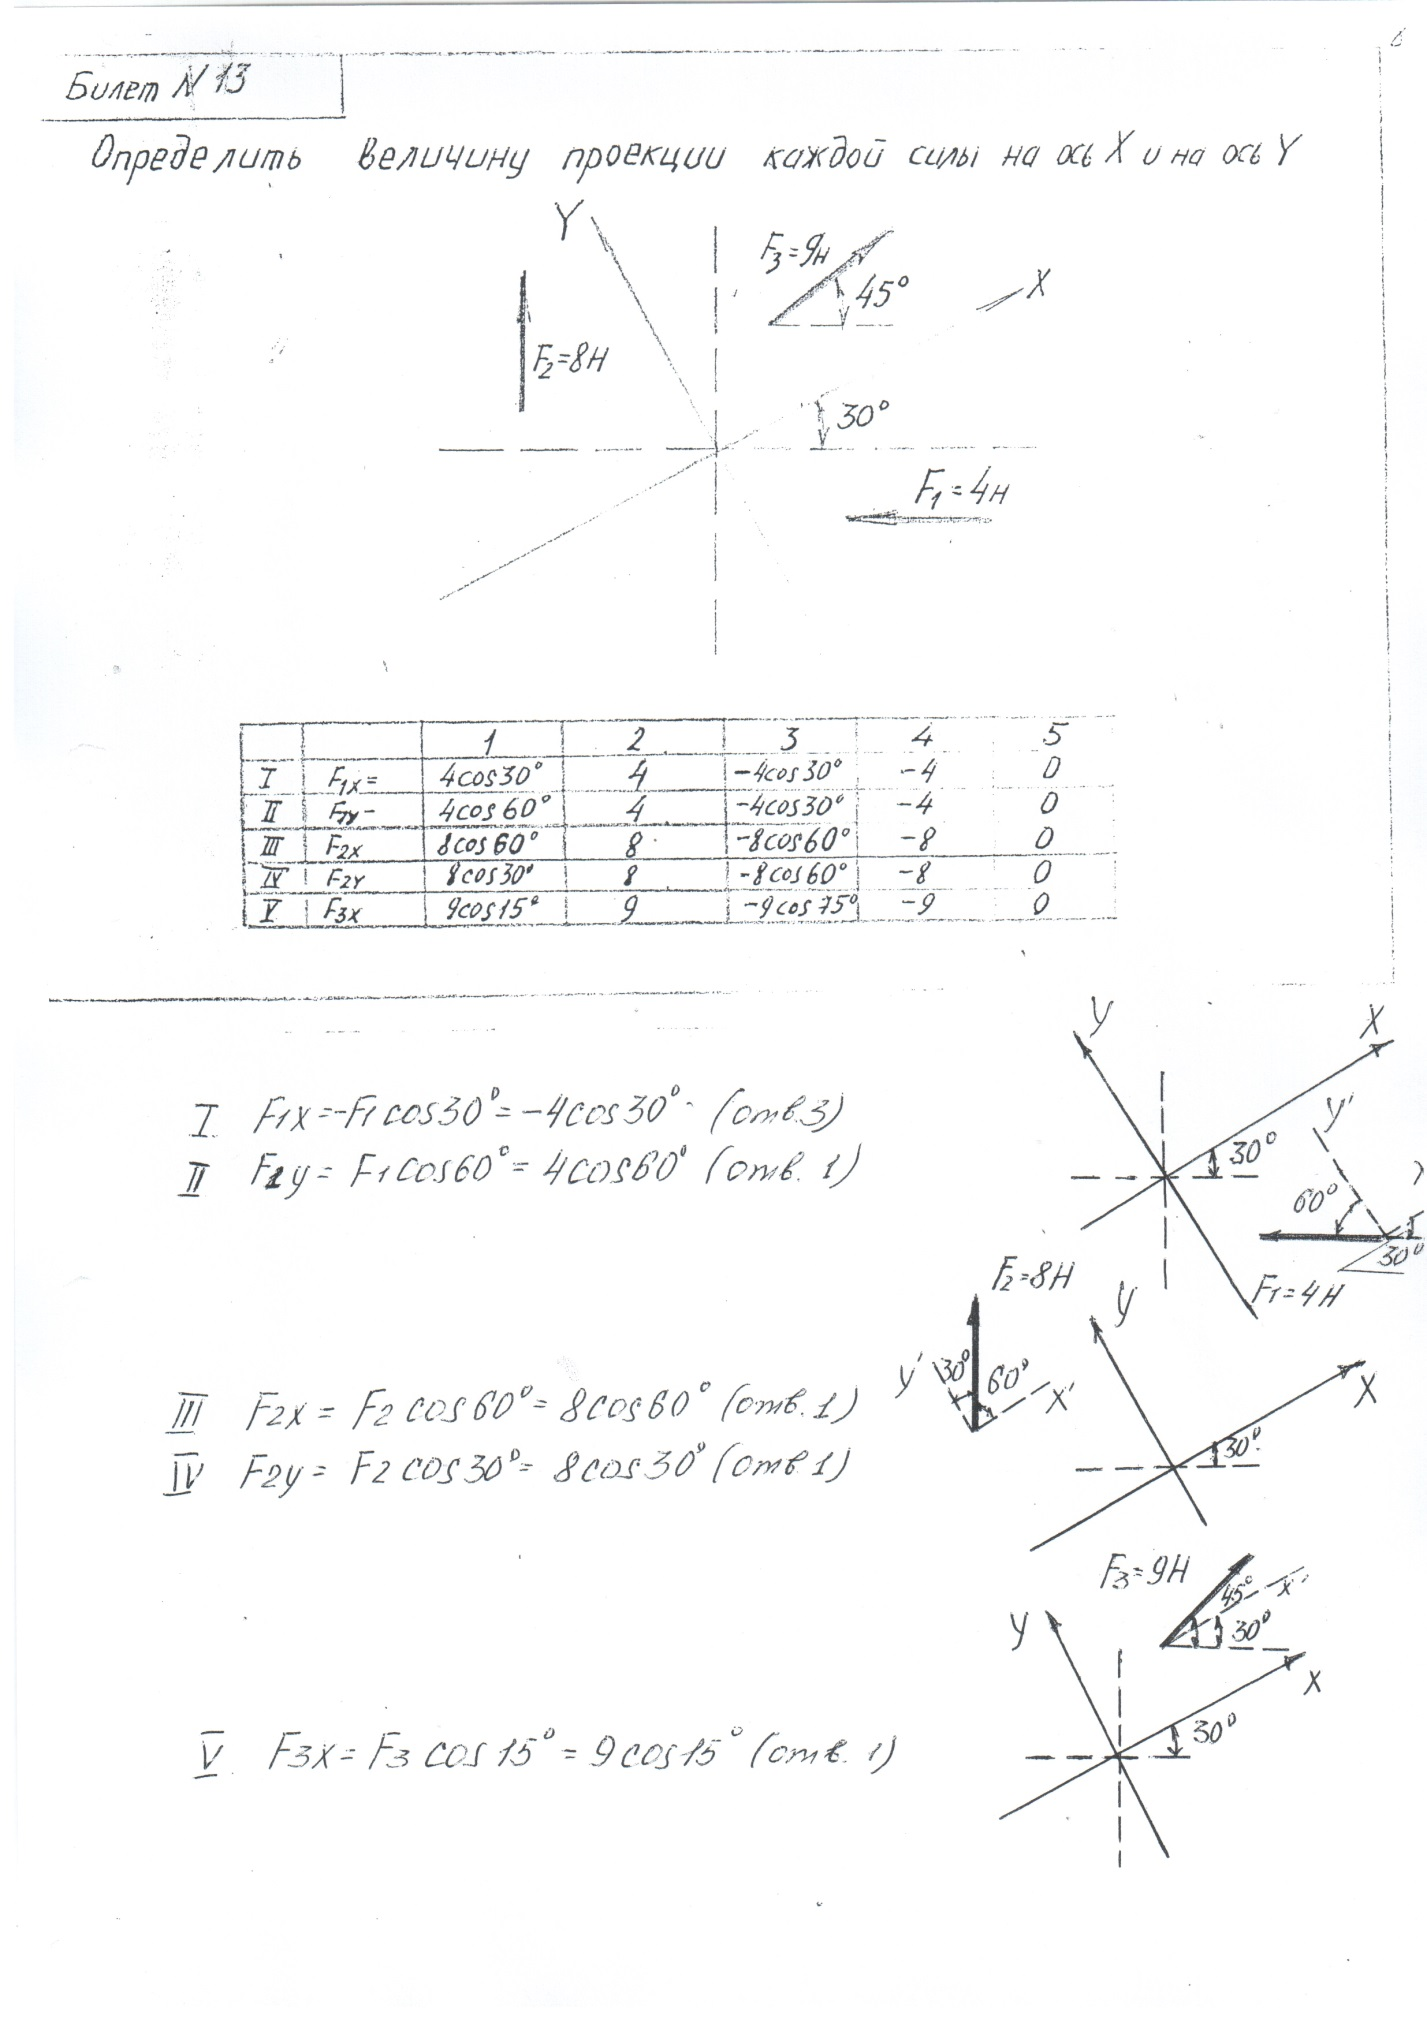 Билет N 13
Определить величину проекции каждой силы на ось X и на ось Y
Y
F3=9н
45°
X
F2=8Н
30°
F1=4н
1 2 3 4 5
I F1X= 4cos30° 4 -4cos30° -4 0
II F1Y- 4cos60° 4 -4cos30° -4 0
III F2X 8cos60° 8 -8cos60° -8 0
IV F2Y 8cos30° 8 -8cos60° -8 0
V F3X 9cos15° 9 -9cos75° -9 0
y X
y'
30°
60°
30°
F1=4Н
I F1x=-F1cos30°=-4cos30° (отв.3)
II F1y=F1cos60°=4cos60° (отв.1)
F2=8Н
y' 30° 60° x'
y
X
30°
III F2x=F2cos60°=8cos60° (отв.1)
IV F2y=F2cos30°=8cos30° (отв.1)
F3=9Н
45° x'
30°
y
x
30°
V F3x=F3cos15°=9cos15° (отв.1)